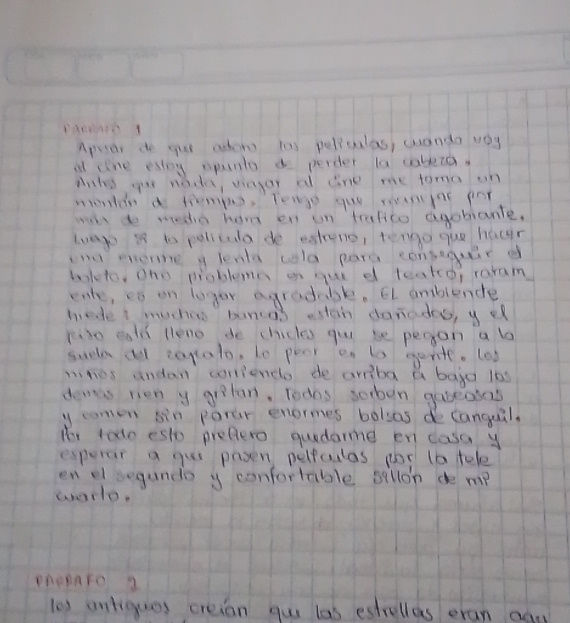 PARRAFO 1
Apesar de que adoro las películas, cuando voy
al cine estoy apunto de perder la cabeza.
Antes que nada, viajar al cine me toma un
montón de tiempo. Tengo que manejar por
más de media hora en un trafico agobiante.
Luego si la pelicula de estreno, tengo que hacer
una enorme y lenta cola para conseguir el
boleto. Otro problema es que el teatro, raram
ente, es un lugar agradable. EL ambiende
hiede; muchas buncas están dañadas, y el
piso está lleno de chicles que se pegan a la
suela del zapato. Lo peor es la gente. Los
niños andan corriendo de arriba a bajo los
demás rien y gritan. Todos sorben gaseosas
y comen sin parar enormes bolsas de canguil.
Por todo esto prefiero quedarme en casa y
esperar a que pasen películas por la tele
en el segundo y confortable sillón de mi
cuarto.
PARRAFO 2
los antiguos creían que las estrellas eran